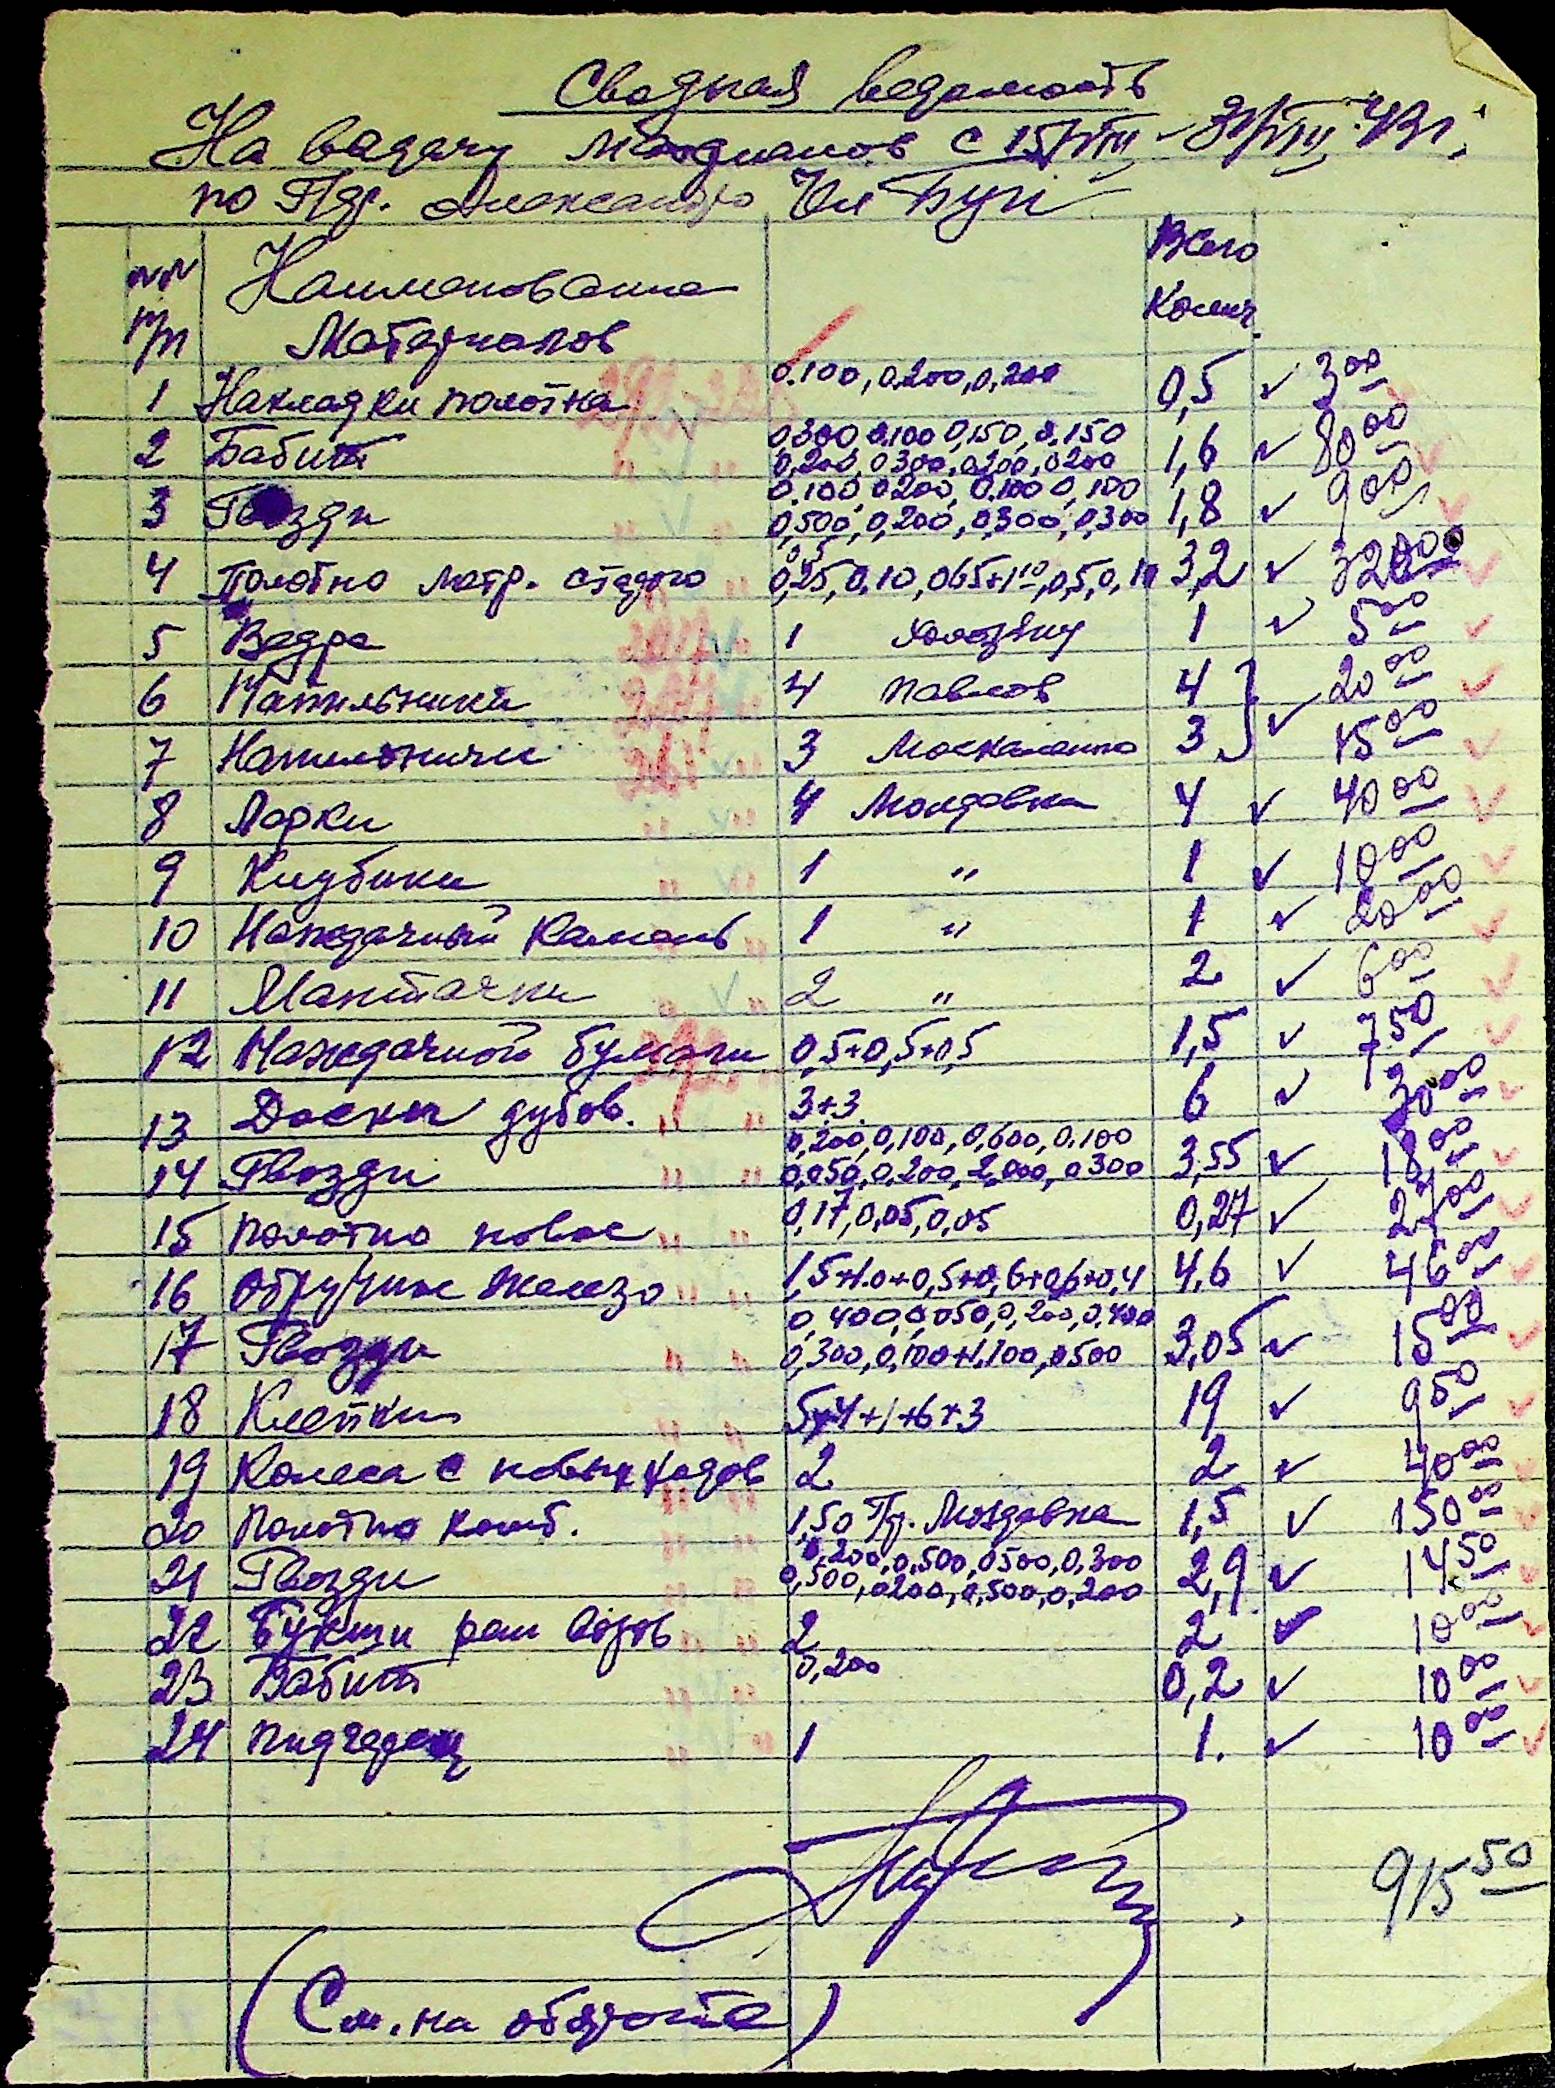 Сводная ведомость
На видачу с 15/VIII - 31/VIII 43 г.
по
NN Наименование Всего
п/п Материалов Колич.
1 Накладки полотна 0.100, 0.200, 0,200 0,5 ✓ 3 00
2 Бабит 0,300 0.100 0,150, 0.150 0,200, 0300, 0200, 0200 1,6 ✓ 80 00
3 Гвозди 0.100, 0200, 0.100 0,100 0,500, 0,200, 0,300, 0,300 1,8 ✓ 9 00
4 Полотно матр. старого 0,5 0,25, 0,10, 065+1 10, 0,5, 0,10 3,2 ✓ 320 00
5 Ведра 1 1 ✓ 5 00
6 Напильники 4 Павлов 4 ✓ 20 00
7 Напильники 3 Москаленко 3 15 00
8 4 Молдовка 4 ✓ 40 00
9 1 " 1 ✓ 10 00
10 Наждачный камень 1 " 1 ✓ 20 00
11 Мантачки 2 " 2 ✓ 6 00
12 Наждачной бумаги 0,5+0,5+0,5 1,5 ✓ 7 50
13 Доски дубов. 3+3 6 ✓ 30 00
14 Гвозди 0,200, 0,100, 0,600, 0.100 0,050, 0,200, 2,000, 0300 3,55 ✓ 18 00
15 Полотно новое 0,17, 0,05, 0,05 0,27 ✓ 27 00
16 Обручное железо 1,5+1.0+0,5+0,6+0,6+0,4 4,6 ✓ 46 00
17 Гвозди 0,400, 0,050, 0,200, 0,400 0,300, 0,100+1,100, 0500 3,05 ✓ 15 00
18 Клепки 5+4+1+6+3 19 ✓ 9 50
19 Колеса с новых ходов 2 2 ✓ 40 00
20 Полотно комб. 1,50 Пр. Молдовка 1,5 ✓ 150 00
21 Гвозди 0,200, 0,500, 0500, 0,300 0,500, 0200, 0,500, 0,200 2,9 ✓ 14 50
22 2 2 ✓ 10 00
23 Бабит 0,200 0,2 ✓ 10 00
24 1 1. ✓ 10 00
915 50
(См. на обороте)